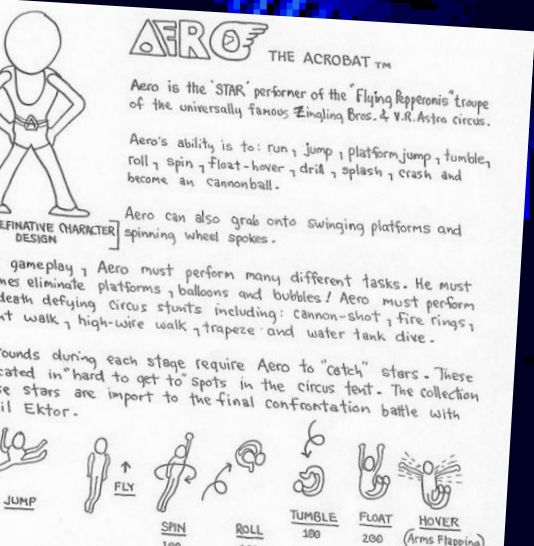 AERO THE ACROBAT TM
Aero is the 'STAR' performer of the "Flying Pepperonis" troupe
of the universally famous Zingling Bros. & V.R. Astro circus.
Aero's ability is to: run, jump, platform jump, tumble,
roll, spin, float-hover, drill, splash, crash and
become an cannonball.
Aero can also grab onto swinging platforms and
spinning wheel spokes.
EFINATIVE CHARACTER
DESIGN
gameplay, Aero must perform many different tasks. He must
mes eliminate platforms, balloons and bubbles! Aero must perform
death defying circus stunts including: cannon-shot, fire rings,
nt walk, high-wire walk, trapeze and water tank dive.
ounds during each stage require Aero to "catch" stars. These
cated in "hard to get to" spots in the circus tent. The collection
se stars are import to the final confrontation battle with
il Ektor.
JUMP
FLY
SPIN
ROLL
TUMBLE
100
FLOAT
200
HOVER
(Arms Flapping)